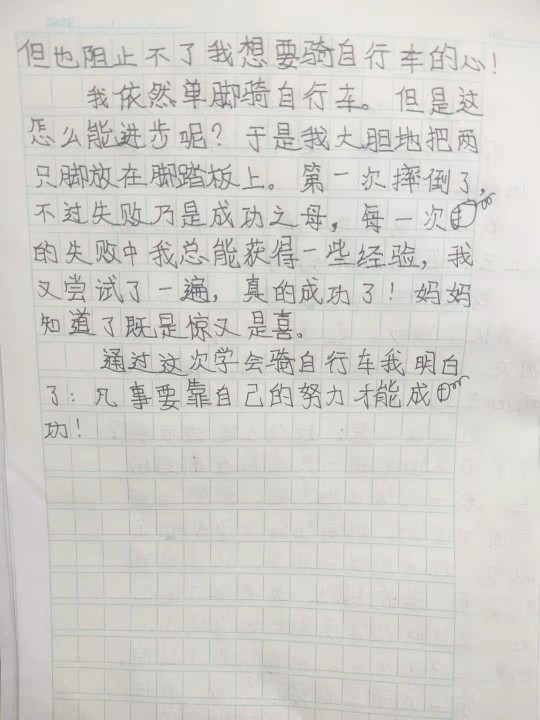 DATE
但也阻止不了我想要骑自行车的心！
我依然单脚骑自行车。但是这
怎么能进步呢？于是我大胆地把两
只脚放在脚踏板上。第一次摔倒了，
不过失败乃是成功之母，每一次
的失败中我总能获得一些经验，我
又尝试了一遍，真的成功了！妈妈
知道了既是惊又是喜。
通过这次学会骑自行车我明白
了：凡事要靠自己的努力才能成
功！